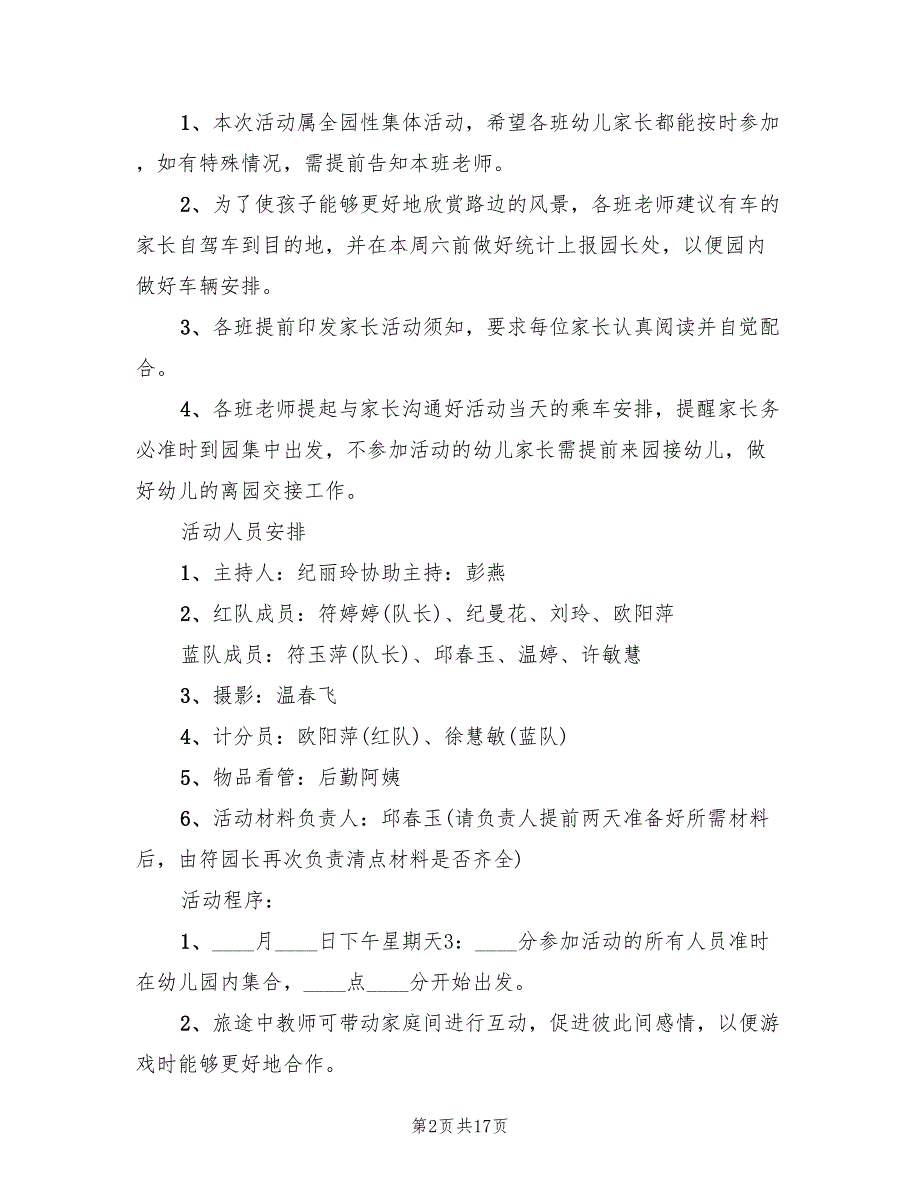 1、本次活动属全园性集体活动，希望各班幼儿家长都能按时参加
，如有特殊情况，需提前告知本班老师。
2、为了使孩子能够更好地欣赏路边的风景，各班老师建议有车的
家长自驾车到目的地，并在本周六前做好统计上报园长处，以便园内
做好车辆安排。
3、各班提前印发家长活动须知，要求每位家长认真阅读并自觉配
合。
4、各班老师提起与家长沟通好活动当天的乘车安排，提醒家长务
必准时到园集中出发，不参加活动的幼儿家长需提前来园接幼儿，做
好幼儿的离园交接工作。
活动人员安排
1、主持人：纪丽玲协助主持：彭燕
2、红队成员：符婷婷(队长)、纪曼花、刘玲、欧阳萍
蓝队成员：符玉萍(队长)、邱春玉、温婷、许敏慧
3、摄影：温春飞
4、计分员：欧阳萍(红队)、徐慧敏(蓝队)
5、物品看管：后勤阿姨
6、活动材料负责人：邱春玉(请负责人提前两天准备好所需材料
后，由符园长再次负责清点材料是否齐全)
活动程序：
1、____月____日下午星期天3：____分参加活动的所有人员准时
在幼儿园内集合，____点____分开始出发。
2、旅途中教师可带动家庭间进行互动，促进彼此间感情，以便游
戏时能够更好地合作。
第2页共17页